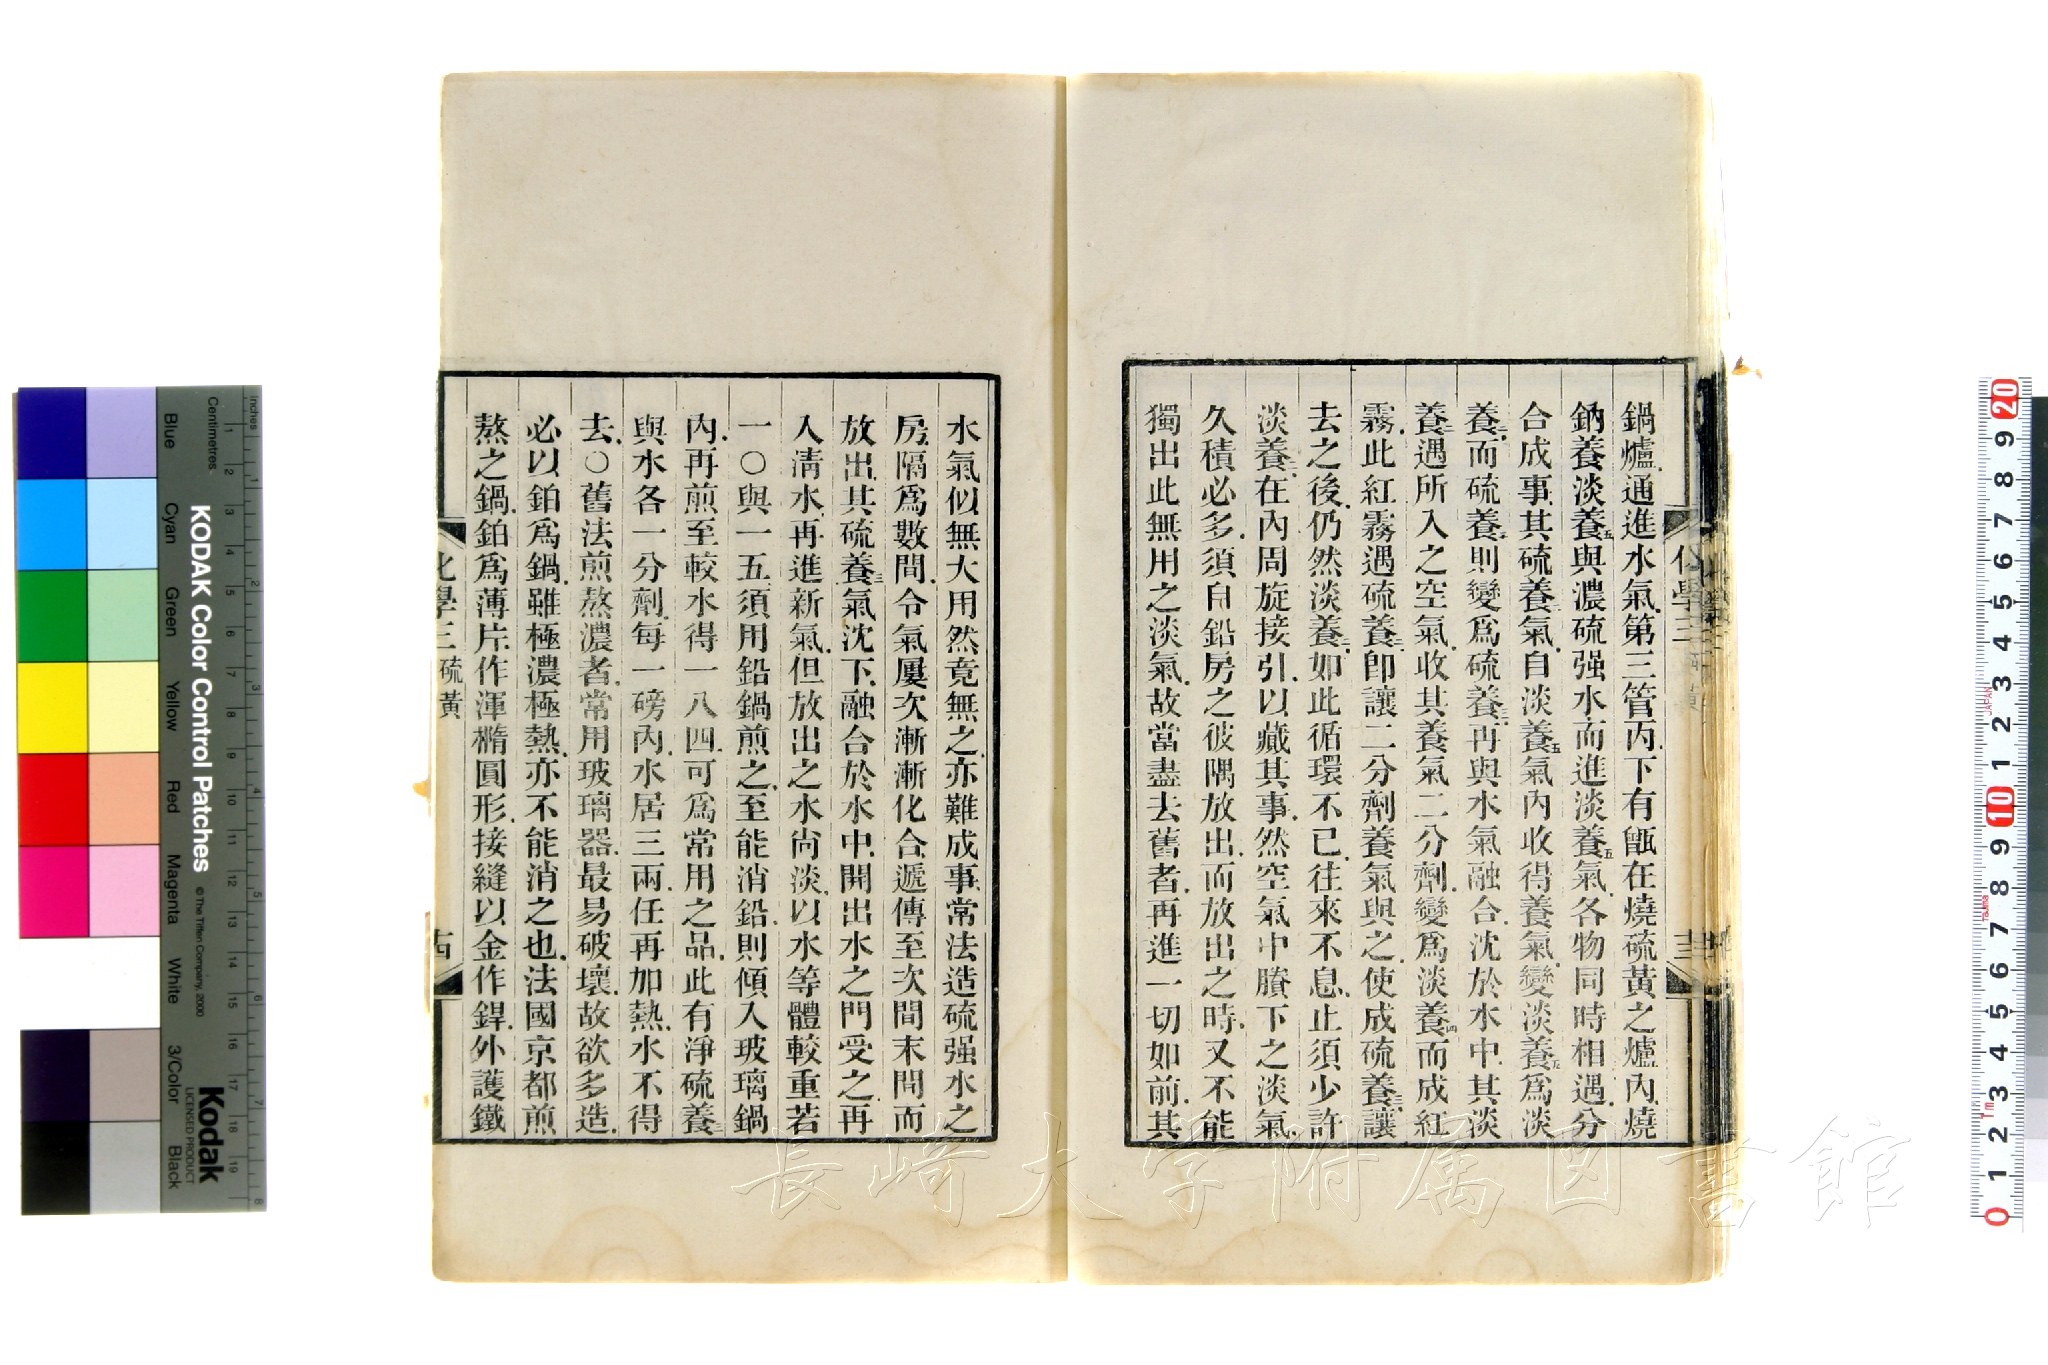 鍋爐通進水氣第三管內下有甑在燒硫黃之爐內燒
鈉養淡養五與濃硫强水而進淡養五氣各物同時相遇分
合成事其硫養二氣自淡養五氣內收得養氣變淡養五爲淡
養二而硫養二則變爲硫養三再與水氣融合沈於水中其淡
養二遇所入之空氣收其養氣二分劑變爲淡養四而成紅
霧此紅霧遇硫養二卽讓二分劑養氣與之使成硫養三讓
去之後仍然淡養二如此循環不已往來不息止須少許
淡養二在內周旋接引以藏其事然空氣中賸下之淡氣
久積必多須自鉛房之彼隅放出而放出之時又不能
獨出此無用之淡氣故當盡去舊者再進一切如前其
化學三 硫黃
十三
水氣似無大用然竟無之亦難成事常法造硫强水之
房隔爲數間令氣屢次漸漸化合遞傳至次間末間而
放出其硫養三氣沈下融合於水中開出水之門受之再
入淸水再進新氣但放出之水尙淡以水等體較重若
一〇與一五須用鉛鍋煎之至能消鉛則傾入玻璃鍋
內再煎至較水得一八四可爲常用之品此有淨硫養三
與水各一分劑每一磅內水居三兩任再加熱水不得
去〇舊法煎熬濃者常用玻璃器最易破壞故欲多造
必以鉑爲鍋雖極濃極熱亦不能消之也法國京都煎
熬之鍋鉑爲薄片作渾橢圓形接縫以金作銲外護鐵
化學三 硫黃
十四
長崎大学附属図書館
KODAK Color Control Patches
© The Tiffen Company, 2000
Kodak
LICENSED PRODUCT
Inches
Centimetres
Blue Cyan Green Yellow Red Magenta White 3/Color Black